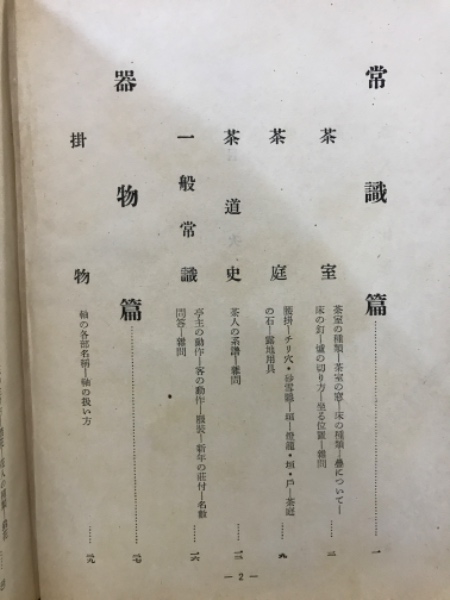 常識篇……一
茶室 茶室の種類―茶室の窓―床の種類―疊について―
床の釘―爐の切り方―坐る位置―雜問……三
茶庭 腰掛―チリ穴・砂雪隱―垣―燈籠・垣・戶―茶庭
の石―露地用具……九
茶道史 茶人の系譜―雜問……一三
一般常識 亭主の動作―客の動作―服裝―新年の莊付―名數
問答―雜問……一六
器物篇……一七
掛物 軸の各部名稱―軸の扱い方……一九
― 2 ―